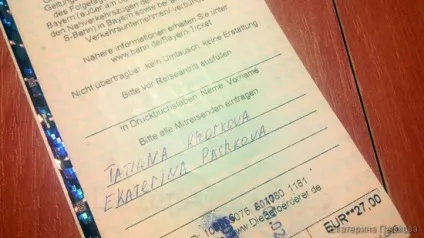 des Folgetag
Bayern (außer am
den Nahverkehrszügen
S-Bahn) in Bayern sowie bei
Verkehrsunternehmen
Nähere Informationen erhalten Sie unter
www.bahn.de/Bayern-Ticket
Nicht übertragbar, kein Umtausch, keine Erstattung
Bitte vor Reiseantritt ausfüllen
in Druckbuchstaben: Name, Vorname
Bitte alle Mitreisenden eintragen
TATIANA
EKATERINA PASHKOVA
1181
EUR**27,00
Екатерина Пашкова